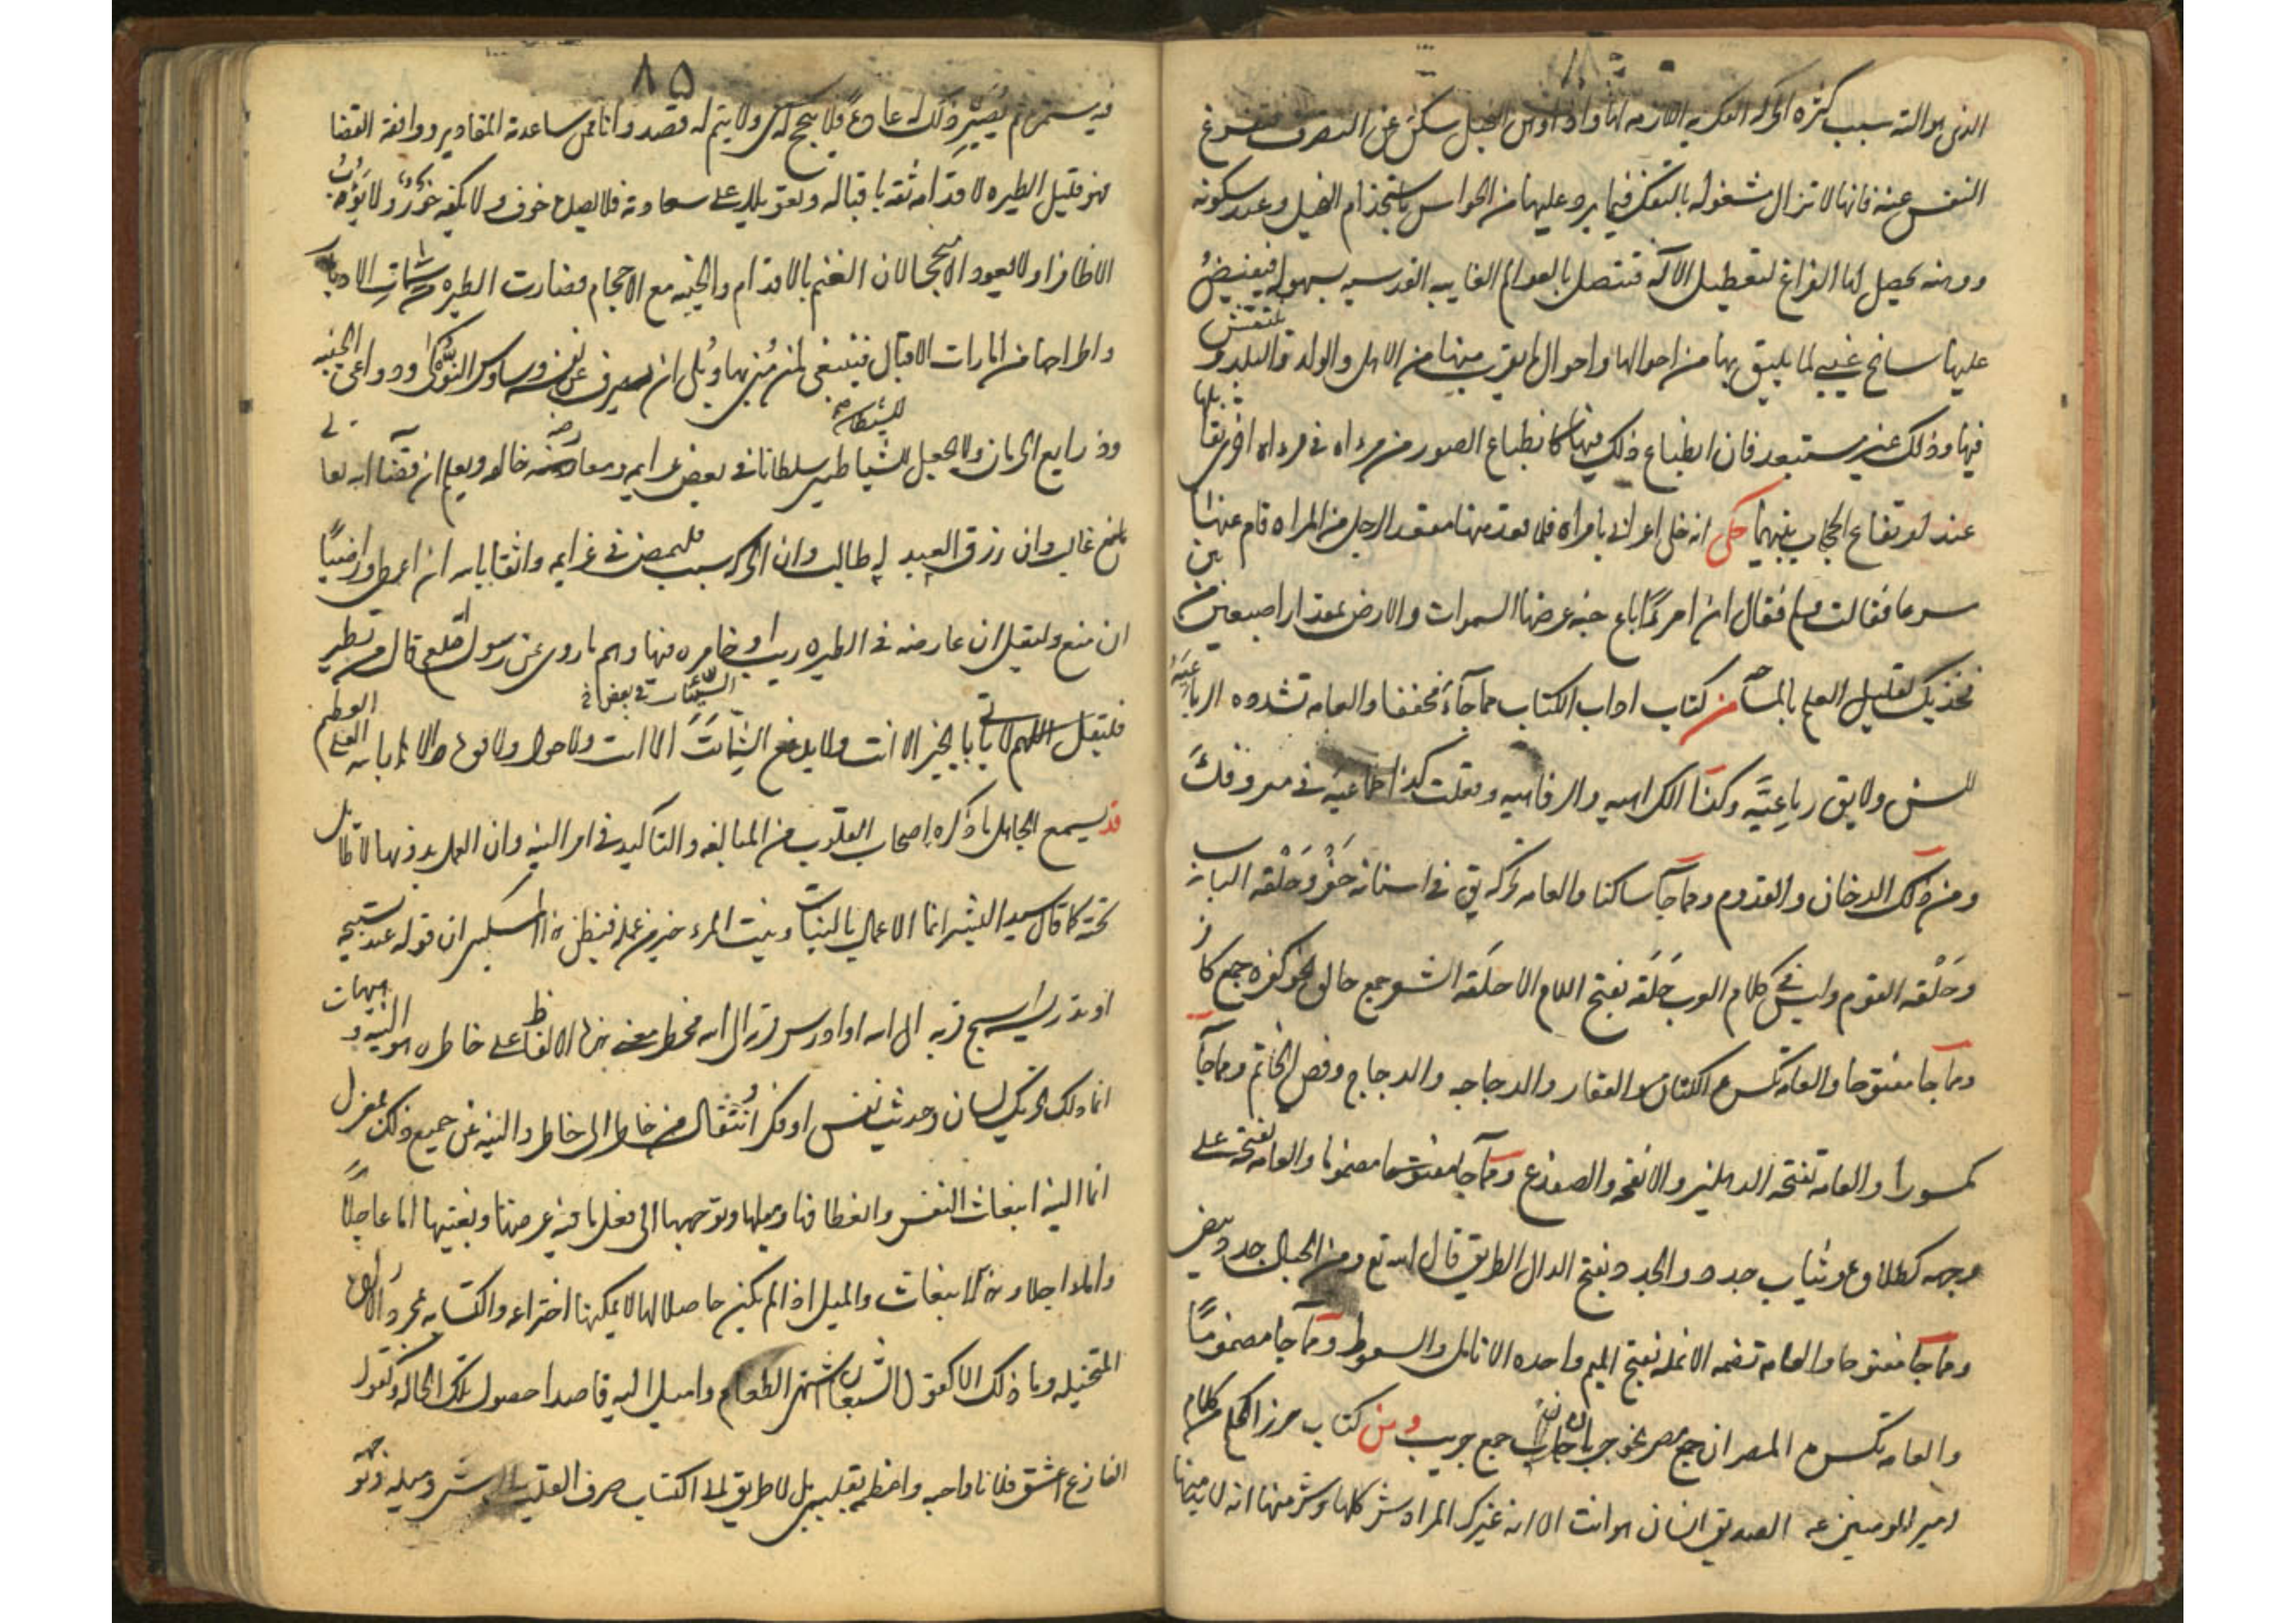 الذي هو آلته بسبب كثرة الحركة الفكرية اللازمة لها واذا وهن التخيل سكن عن التصرف فتفرغ
النفس عنه فانها لا تزال مشغولة بالتفكر فيما يرد عليها من الحواس باستخدام التخيل وعند سكونه
ووهنه يحصل لها الفراغ لتعطيل الآلة فتتصل بالعوالم الغايبه القدسيه بسهوله فيفيض
عليها سانح غيبي لما يليق بها من احوالها واحوال ما يقرب منها من الاهل والولد والبلد و ينتقش
فيها وذلك غير مستبعد فان انطباع ذلك فيها كانطباع الصور من مرءاه في مرءاه اخرى تقابلها
عند ارتفاع الحجاب بينهما حكى انه خلى اعرابي بامراه فلما قعد منها مقعد الرجل من المراه قام عنها
سرعا فقالت ولم فقال ان امرءًا باع جنه عرضها السموات والارض بمقدار اصبعين من بين
فخذيك لقليل العلم بالمساحه من كتاب اداب الكتاب مما جاء مخففا والعامه تشدده الرباعيه
للسن ولا يق رباعيَّه وكذا الكراهيه والرفاهيه وفعلت كذا طماعيه في معروفك
ومن ذلك الدخان والقدوم ومما جآ ساكنا والعامه تحركه يق في اسنانه حَفْر وحَلْقه الباب
وحَلْقه القوم وليس في كلام العرب حَلَقه بفتح اللام الا حلَقَه الشعر جمع حالق نحو كفره جمع كافر
ومما جآ مفتوحا والعامه تكسره الكتان والعقار والدجاجه والدجاج وفص الخاتم ومما جآ
مكسورا والعامه تفتحه الدهليز والانفحه والضفدع ومما جآ مضموما والعامه تفتحه على
وجهه طلاوه وثياب جدد والجدد بفتح الدال الطريق قال الله تع ومن الجبال جدد بيض
ومما جآ مفتوحا والعامه تضمه الانمله بفتح الميم واحده الانامل والسعوط ومما جآ مضمومًا
والعامه تكسره المصران جمع مصير نحو جربان جمع جريب ومن كتاب حرز الحكم من كلام
امير المومنين عه الصديق انسان هو انت الا انه غيرك المراه شر كلها وشر منها انه لا بد منها
٨٥
فيه يستمر ثم يُصَيِّر ذلك له عادة فلا ينجح له سعي ولا يتم له قصد واما من ساعدته المقادير ووافقه القضا
فهو قليل الطيره لاقدامه ثقه باقباله وتعويلا على سعادته فلا يصده خوف ولا يكفه خَوَر ولا يؤب
الا ظافرا ولا يعود الا منجحا لان الغنم بالاقدام والخيبه مع الاحجام فصارت الطيره من سمات الادبار
واطراحها من امارات الاقبال فينبغي لمن مُني بها وبُلي ان يصرف عن نفسه وساوس النوكى ودواعي الخيبه
وذرايع الحرمان ولا يجعل للشيطان سلطانا في نقض عزايمه ومعارضه خالقه ويعلم ان قضا الله تعالى
عليه غالب وان رزق العبد له طالب وان الحركه سبب فليمض في عزايمه واثقا بالله ان اعطى وراضيًا
ان منع وليقل ان عارضه في الطيره ريب او خامره منها وهم ما روي عن رسول الله صلعم قال من تطير
فليقل اللهم لا ياتي بالخير الا انت ولا يدفع السيئات الا انت ولا حول ولا قوه الا بالله العلي العظيم
قد يسمع الجاهل ما ذكره اصحاب القلوب من المبالغه والتاكيد في امر النيه وان العمل بدونها لا طائل
تحته كما قال سيد البشر انما الاعمال بالنيات ونيت المرء خير من عمله فيظن هذا المسكين ان قوله عند تسبيحه
او تدريسه اسبح قربه الى الله او ادرس قربه الى الله مخطرا معنى هذه الالفاظ على خاطره هو النيه وهيهات
انما ذلك تحريك لسان وحديث نفس او فكر وانتقال من خاطر الى خاطر والنيه عن جميع ذلك بمعزل
انما النيه انبعاث النفس وانعطافها وميلها وتوجهها الى فعل ما فيه غرضها وبغيتها اما عاجلاً
واما اجلا وهذا الانبعاث والميل اذا لم يكن حاصلا لها لا يمكنها اختراعه واكتسابه بمجرد الاراده
المتخيله وما ذلك الا كقول الشبعان اشتهي الطعام واميل اليه قاصدا حصول تلك الحاله وكقول
الفارغ اعشق فلانا واحبه واعظمه بقلبي بل لا طريق الى اكتساب صرف القلب الى الشي وميله وتوجهه